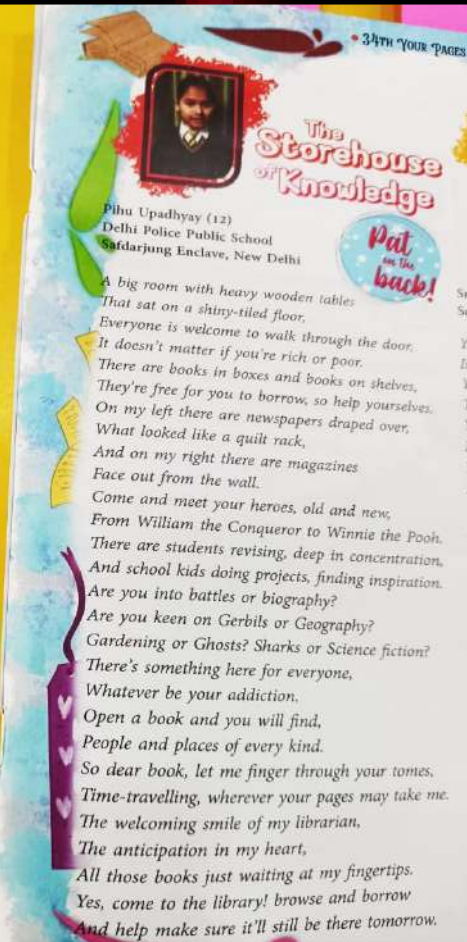 34TH YOUR PAGES
The
Storehouse
of Knowledge
Pihu Upadhyay (12)
Delhi Police Public School
Safdarjung Enclave, New Delhi
Pat
on the
back!
A big room with heavy wooden tables
That sat on a shiny-tiled floor,
Everyone is welcome to walk through the door,
It doesn't matter if you're rich or poor.
There are books in boxes and books on shelves,
They're free for you to borrow, so help yourselves.
On my left there are newspapers draped over,
What looked like a quilt rack,
And on my right there are magazines
Face out from the wall.
Come and meet your heroes, old and new,
From William the Conqueror to Winnie the Pooh.
There are students revising, deep in concentration,
And school kids doing projects, finding inspiration.
Are you into battles or biography?
Are you keen on Gerbils or Geography?
Gardening or Ghosts? Sharks or Science fiction?
There's something here for everyone,
Whatever be your addiction.
Open a book and you will find,
People and places of every kind.
So dear book, let me finger through your tomes,
Time-travelling, wherever your pages may take me.
The welcoming smile of my librarian,
The anticipation in my heart,
All those books just waiting at my fingertips.
Yes, come to the library! browse and borrow
And help make sure it'll still be there tomorrow.